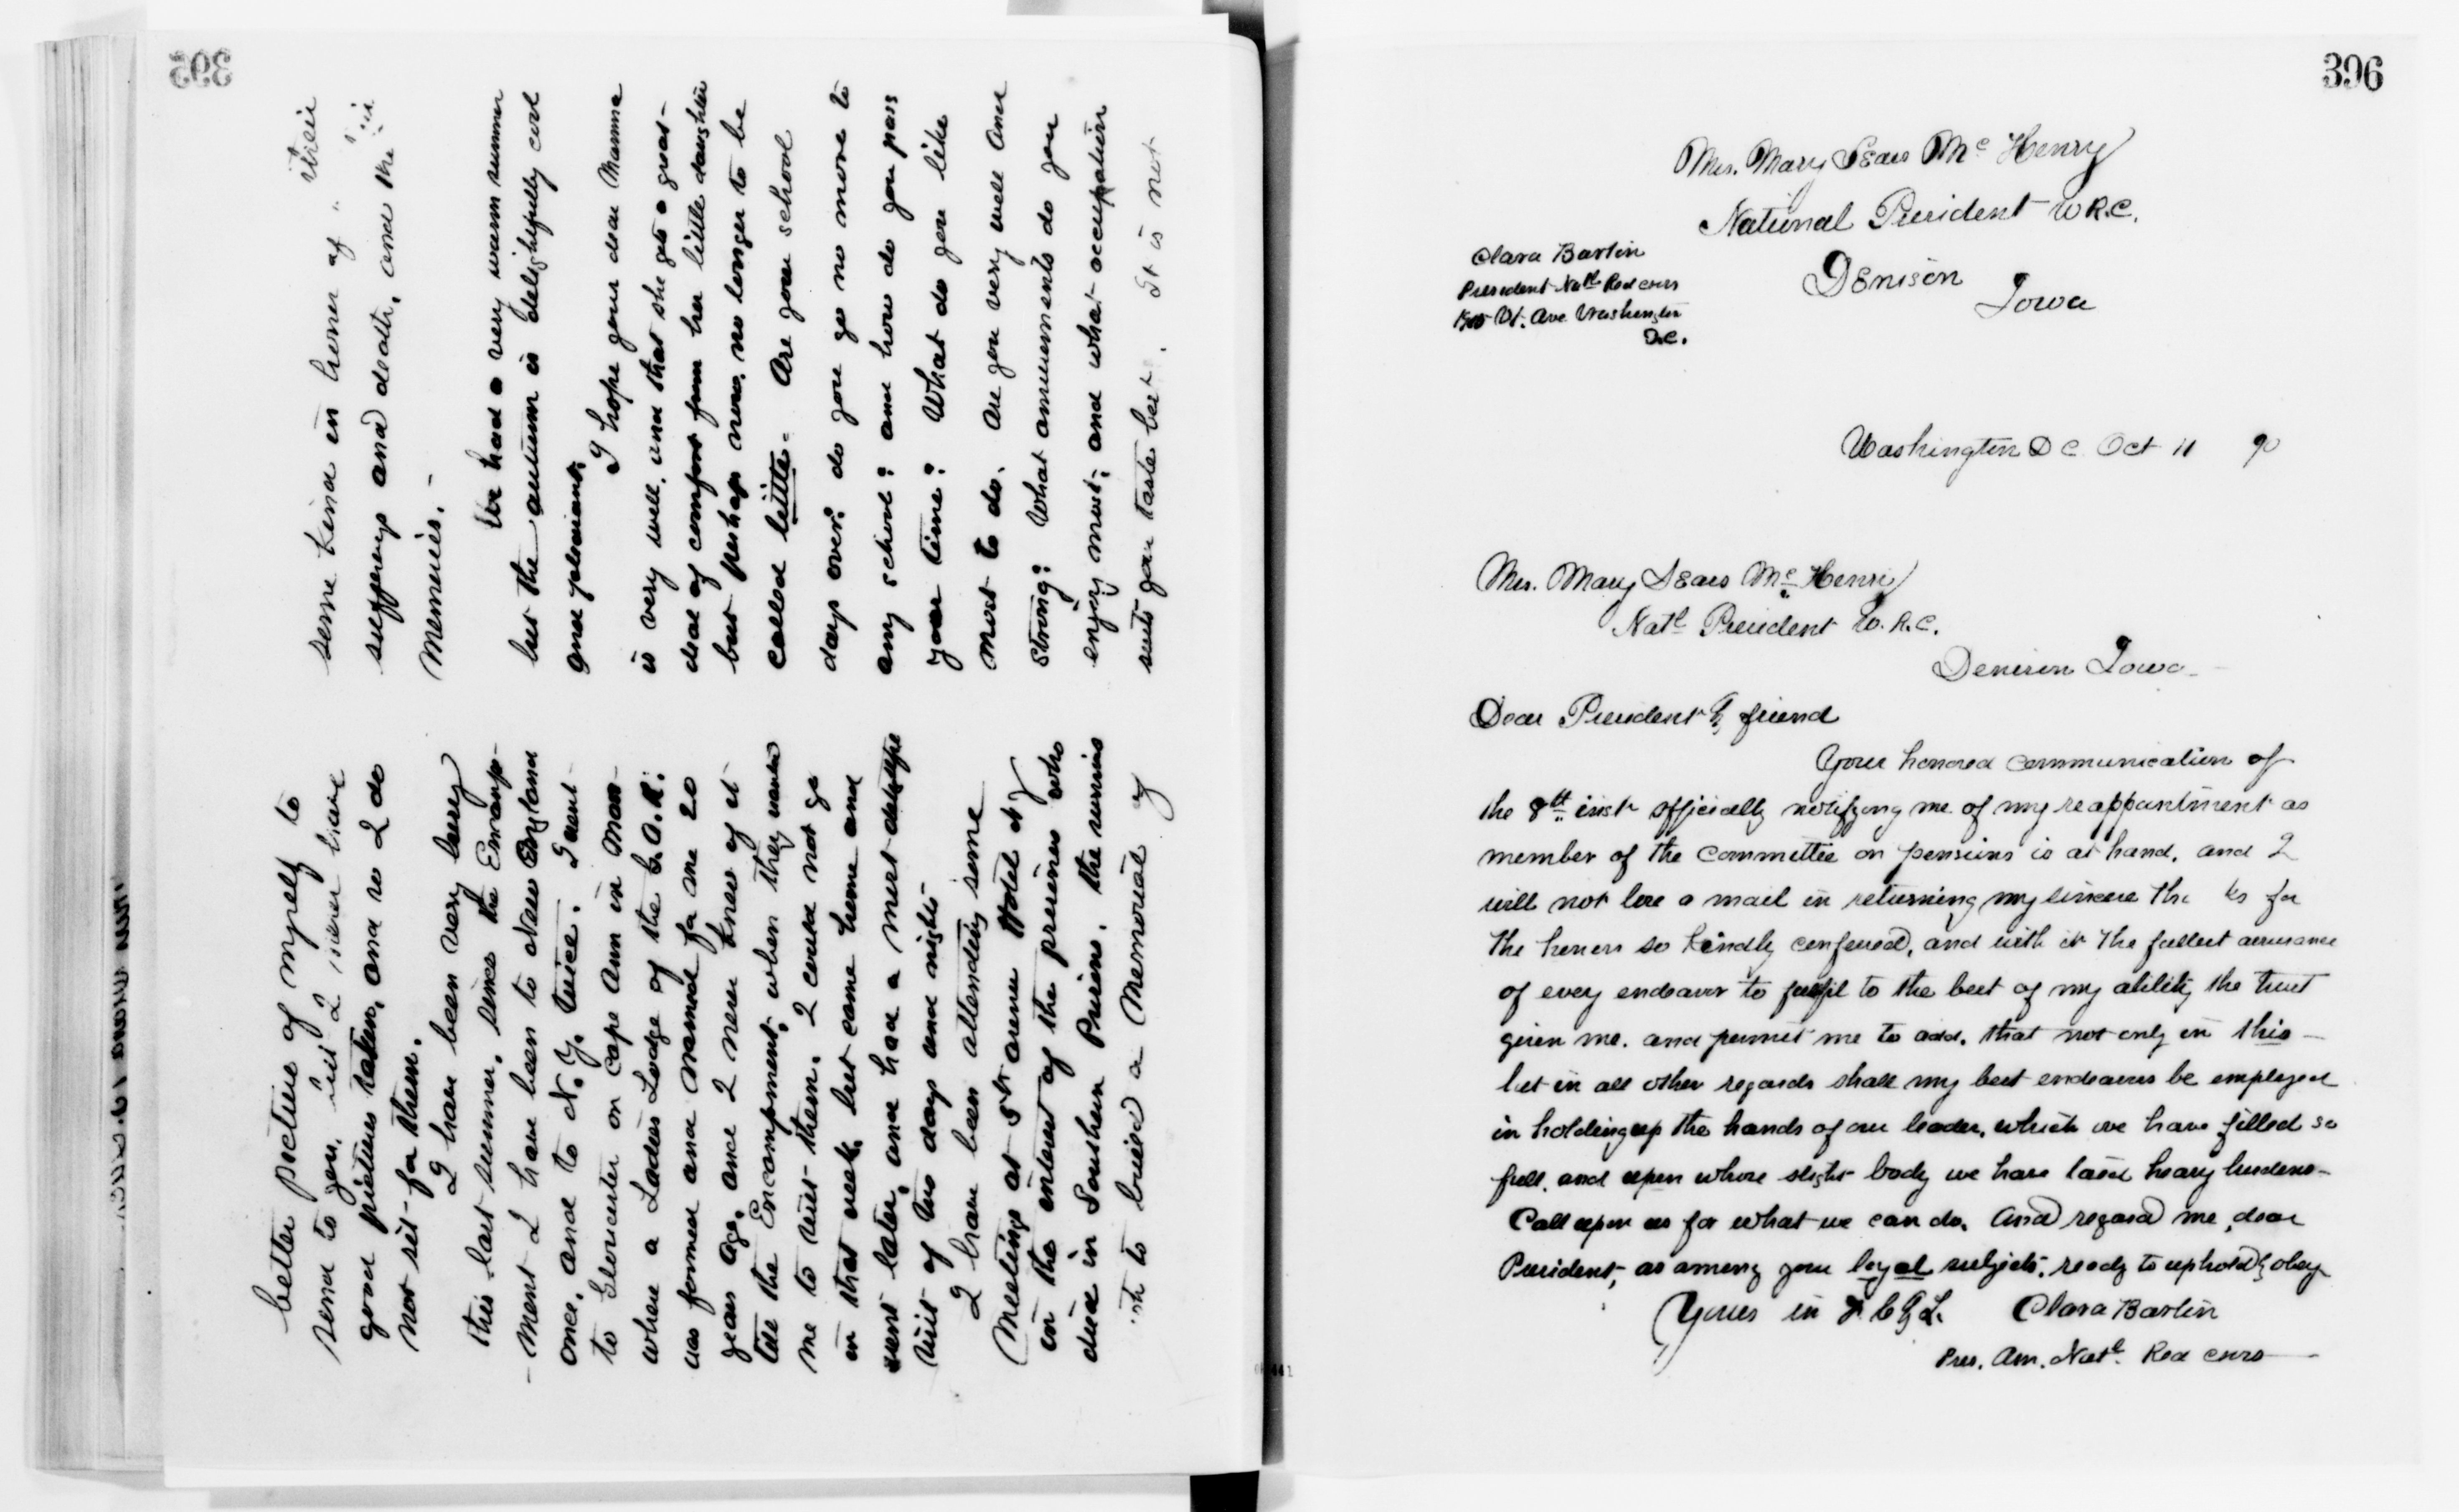 395
better picture of myself to
send to you, but I never have
good pictures taken, and so I do
not sit for them.
I have been very busy
this last summer. Since the Encamp-
-ment I have been to New England
once, and to N.Y. twice. I went
to Gloucester on Cape Ann in Mass
where a Ladies Lodge of the G.A.R.
was formed and named for me 20
years ago, and I never knew of it
till the Encampment, when they wanted
me to visit them. I could not go
in that week, but came home and
went later, and had a most delightful
visit of two days and nights.
I have been attending some
Meetings at 5th avenue Hotel N.Y.
in the interest of the prisoners who
died in Southern Prisons. the survivors
to build a Memorial of
some kind in honor of their
sufferings and death, and the
Memories.-
We had a very warm summer
but the autumn is delightfully cool
and pleasant.
I hope your dear Mamma
is very well, and that she gets a great-
deal of comfort from her little daughter
but perhaps now, no longer to be
called little. Are your school
days over? do you go no more to
any school? and how do you pass
your time? What do you like
most to do. Are you very well and
strong? What amusements do you
enjoy most, and what occupation
suits your taste best. It is not
396
Mrs. Mary Sears Mc Henry
National President W.R.C.
Denison
Iowa
Clara Barton
President Natl Red cross
Vt. Ave. Washington
D.C.
Washington D C Oct 11 90
Mrs. Mary Sears Mc Henry
Natl President W.R.C.
Denison Iowa-
Dear President & friend
Your honored communication of
the 8th inst officially notifying me of my reappointment as
member of the committee on pensions is at hand, and I
will not lose a mail in returning my sincere tha ks for
the honors so kindly conferred, and with it the fullest assurance
of every endeavor to fulfil to the best of my ability the trust
given me. and permit me to add, that not only in this-
but in all other regards shall my best endeavors be employed
in holding up the hands of our leader, which we have filled so
full, and upon whose slight body we have laid heavy burdens-
Call upon us for what we can do. And regard me, dear
President, as among your loyal subjects, ready to uphold & obey
Yours in F. C & L. Clara Barton
Pres. Am. Natl. Red cross